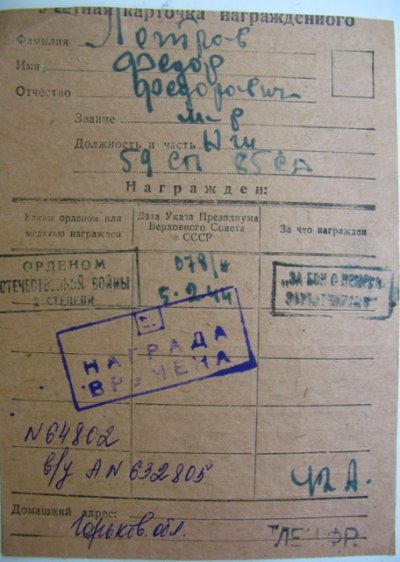 Учетная карточка награжденного
Фамилия Петров
Имя Федор
Отчество Федорович
Звание м-р
Должность и часть НШ
59 СП 85 СД
Награжден:
Каким орденом или медалью награжден
Дата Указа Президиума Верховного Совета СССР
За что награжден
ОРДЕНОМ
ОТЕЧЕСТВЕННОЙ ВОЙНЫ
2 СТЕПЕНИ
078/н
5.2.44
„ЗА БОИ С НЕМЕЦК.
НАГРАДА
ВРУЧЕНА
N 64802
в/у А N 632805
Домашний адрес:
Горьков. обл.
"ЛЕН.ФР.